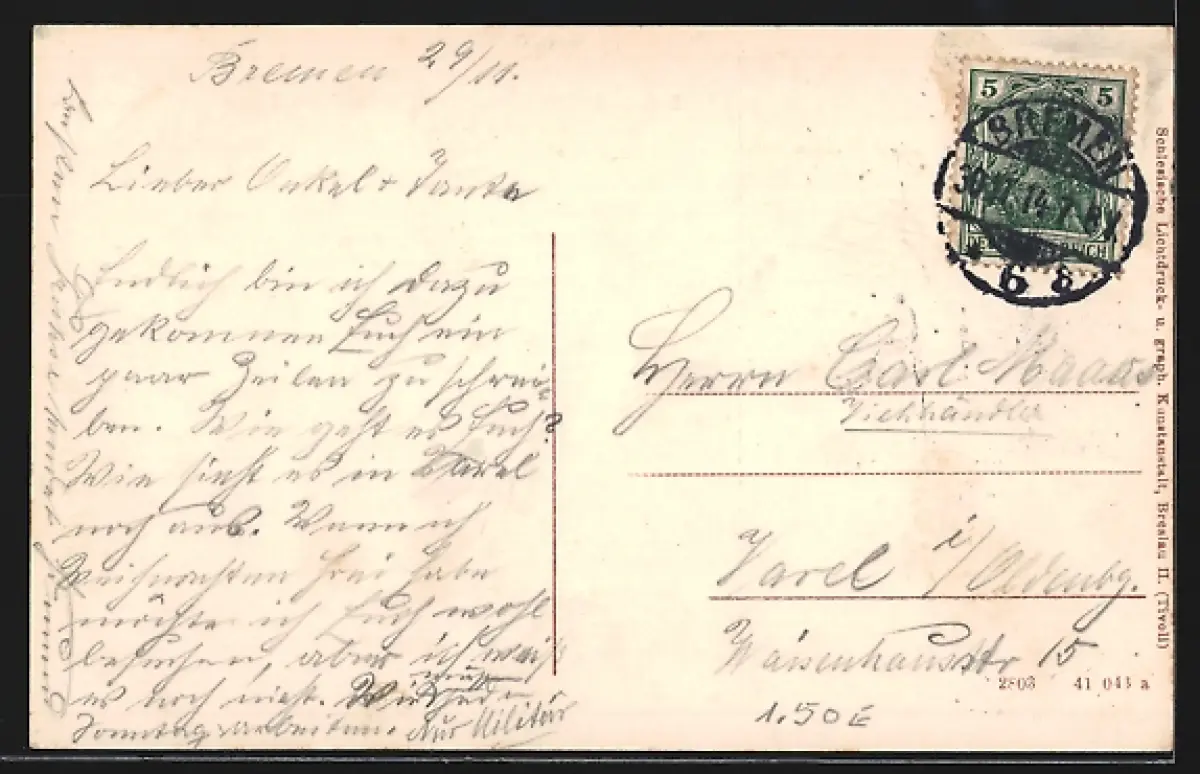 Bremen 29/11.
Lieber Onkel + Tante
Endlich bin ich dazu
gekommen Euch ein
paar Zeilen zu schrei-
ben. Wie geht es Euch?
Wie sieht es in Varel
noch aus. Wenn ich
Weihnachten frei habe
möchte ich Euch wohl
besuchen, aber ich weiß
es noch nicht. Wir müssen
Sonntag arbeiten. Nur Militär
5 5
BREMEN
30.11.14.7-8V.
REICH
6 8
Herrn Carl Maass
Viehhändler
Varel i/Oldenbg.
Waisenhausstr 15
1.50 E
2803 41 043 a
Schlesische Lichtdruck- u. graph. Kunstanstalt, Breslau II. (Tivoli)